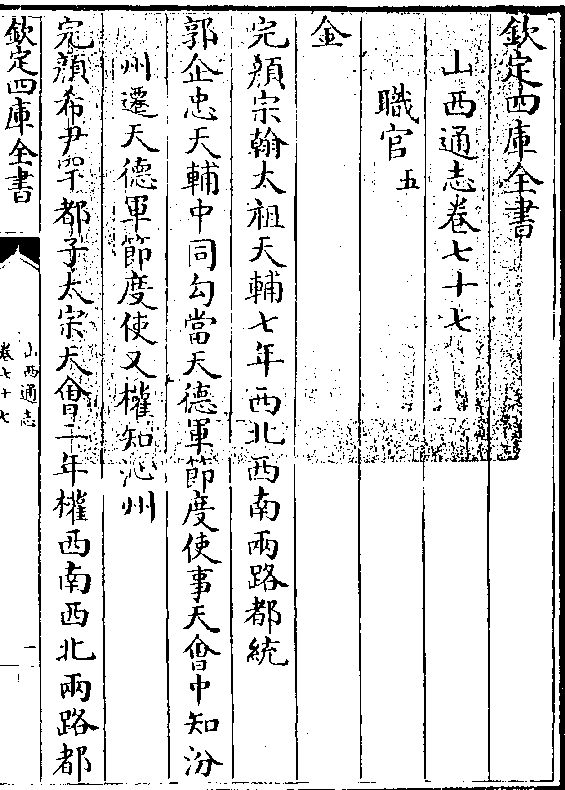 欽定四庫全書
山西通志卷七十七
職官五
金
完顔宗翰太祖天輔七年西北西南兩路都統
郭企忠天輔中同勾當天德軍節度使事天會中知汾
州遷天德軍節度使又權知沁州
完顔希尹罕都子太宗天會二年權西南西北兩路都
欽定四庫全書
山西通志
卷七十七
一